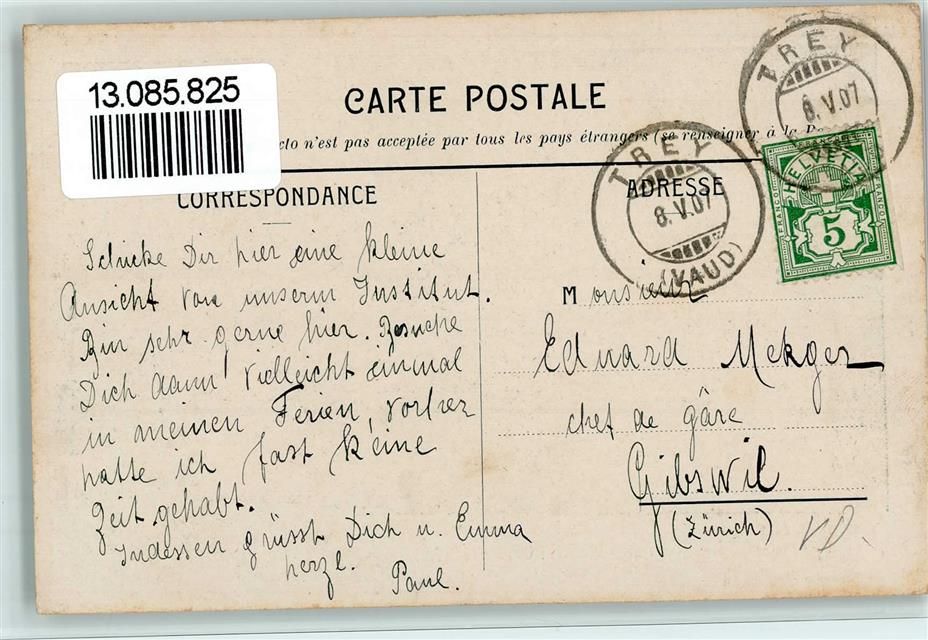 13.085.825
CARTE POSTALE
cto n'est pas acceptée par tous les pays étrangers (se renseigner à la Po
CORRESPONDANCE
ADRESSE
TREY
8.V.07
TREY
8.V.07
(VAUD)
FRANCO
HELVETIA
FRANCO
5
Schicke Dir hier eine kleine
Ansicht von unserm Institut.
Bin sehr gerne hier. Besuche
Dich dann vielleicht einmal
in meinen Ferien, vorher
hatte ich fast keine
Zeit gehabt.
Indessen grüsst Dich u. Emma
herzl.
Paul.
Monsieur
Eduard
chef de gâre
Gibswil.
(Zürich)
VD.